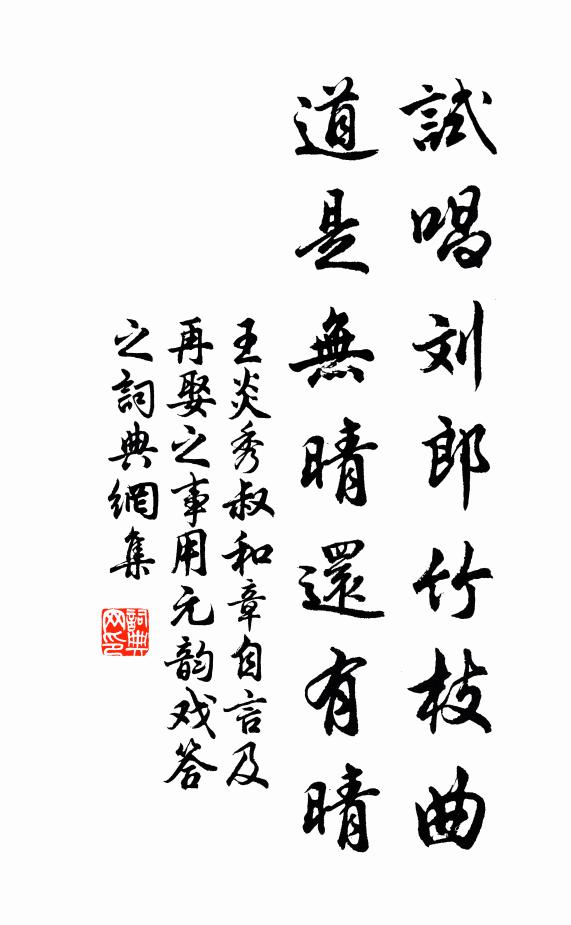 試唱刘郎竹枝曲
道是無晴還有晴
王炎秀叔和章自言及
再娶之事用元韵戏答
之詞典網集
詞典
网印